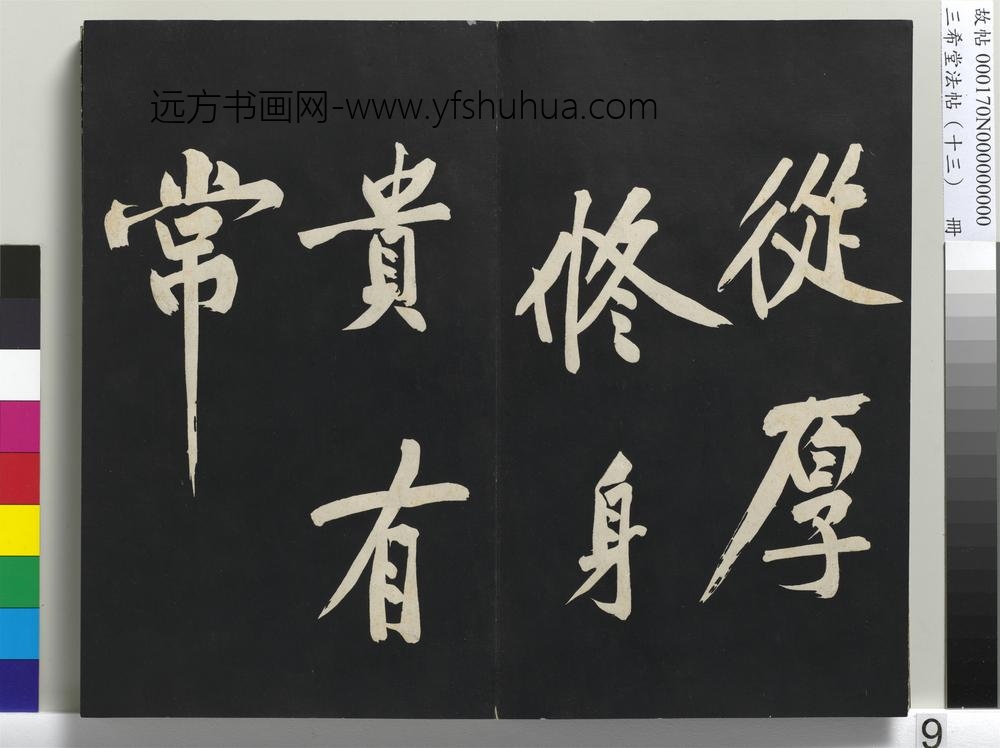 從厚
修身
貴有
常
远方书画网-www.yfshuhua.com
故帖 000170N000000000
三希堂法帖(十三) 冊
9